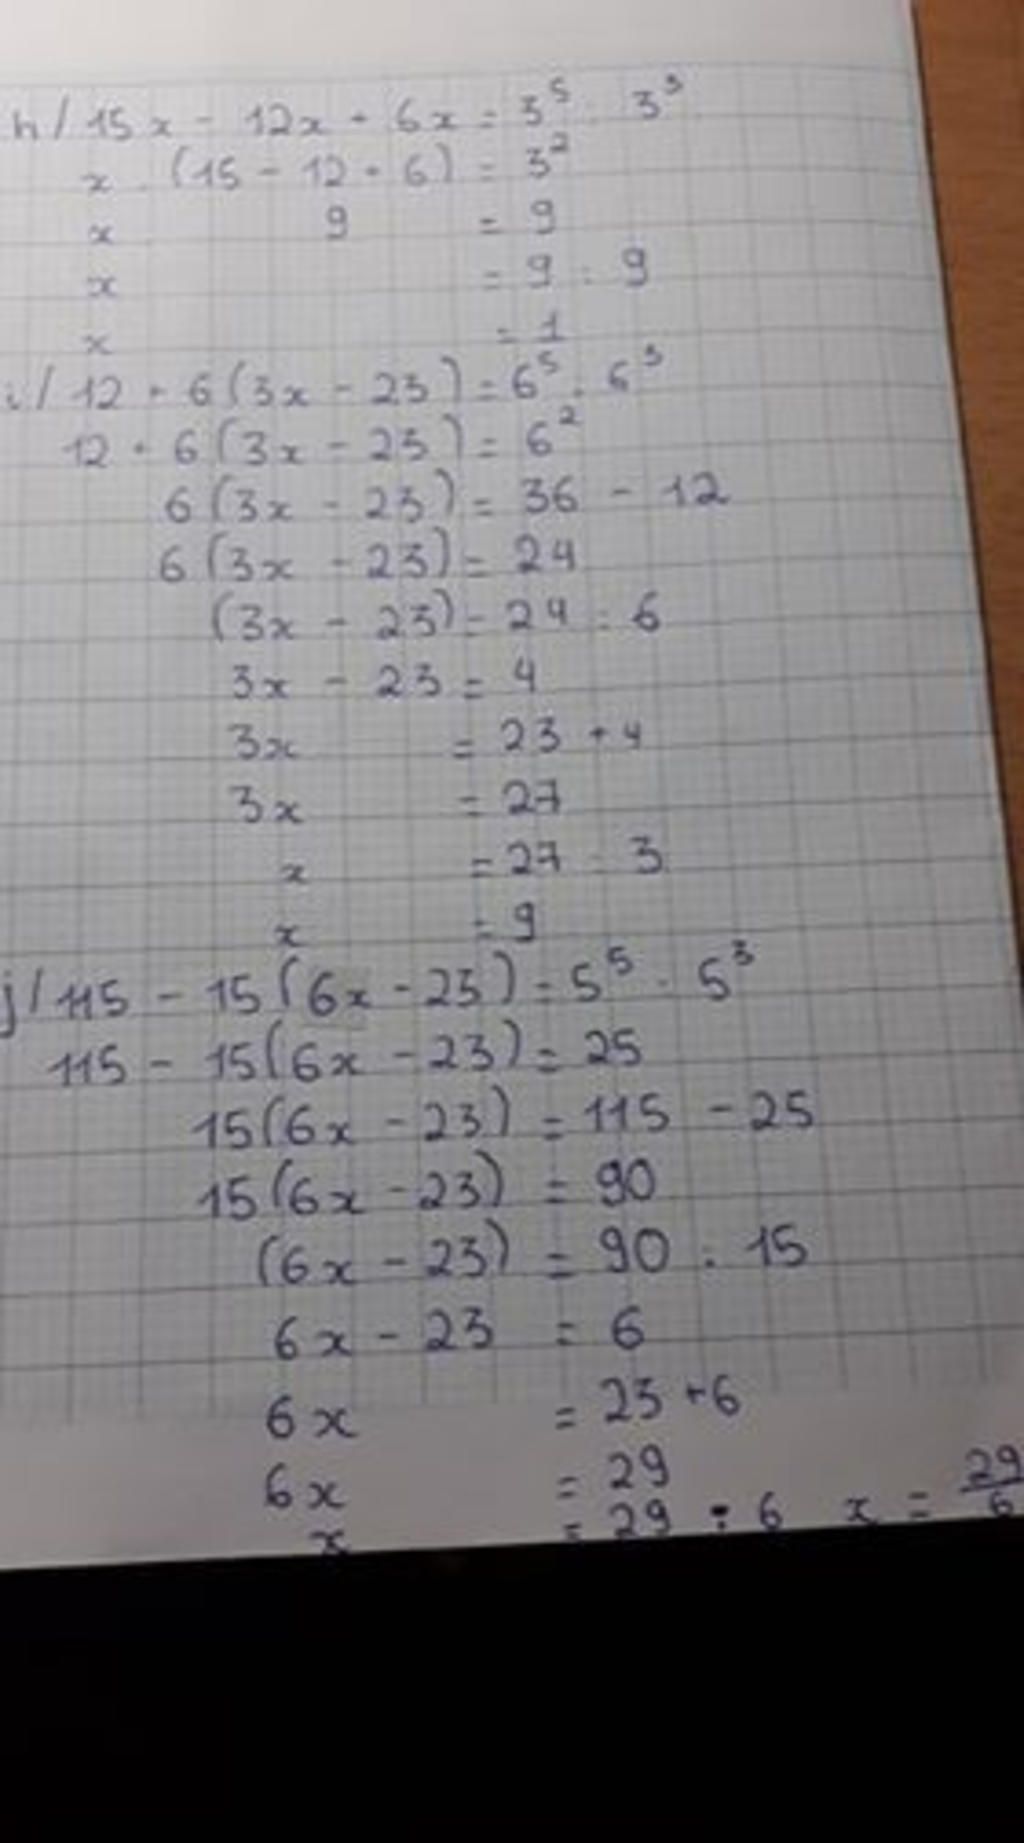 h/ 15x - 12x + 6x = 3⁵ : 3³
x . (15 - 12 + 6) = 3²
x . 9 = 9
x = 9 : 9
x = 1
i/ 12 + 6(3x - 23) = 6⁵ : 6³
12 + 6(3x - 23) = 6²
6(3x - 23) = 36 - 12
6(3x - 23) = 24
(3x - 23) = 24 : 6
3x - 23 = 4
3x = 23 + 4
3x = 27
x = 27 : 3
x = 9
j/ 115 - 15(6x - 23) = 5⁵ : 5³
115 - 15(6x - 23) = 25
15(6x - 23) = 115 - 25
15(6x - 23) = 90
(6x - 23) = 90 : 15
6x - 23 = 6
6x = 23 + 6
6x = 29
x = 29 : 6 x = 29/6